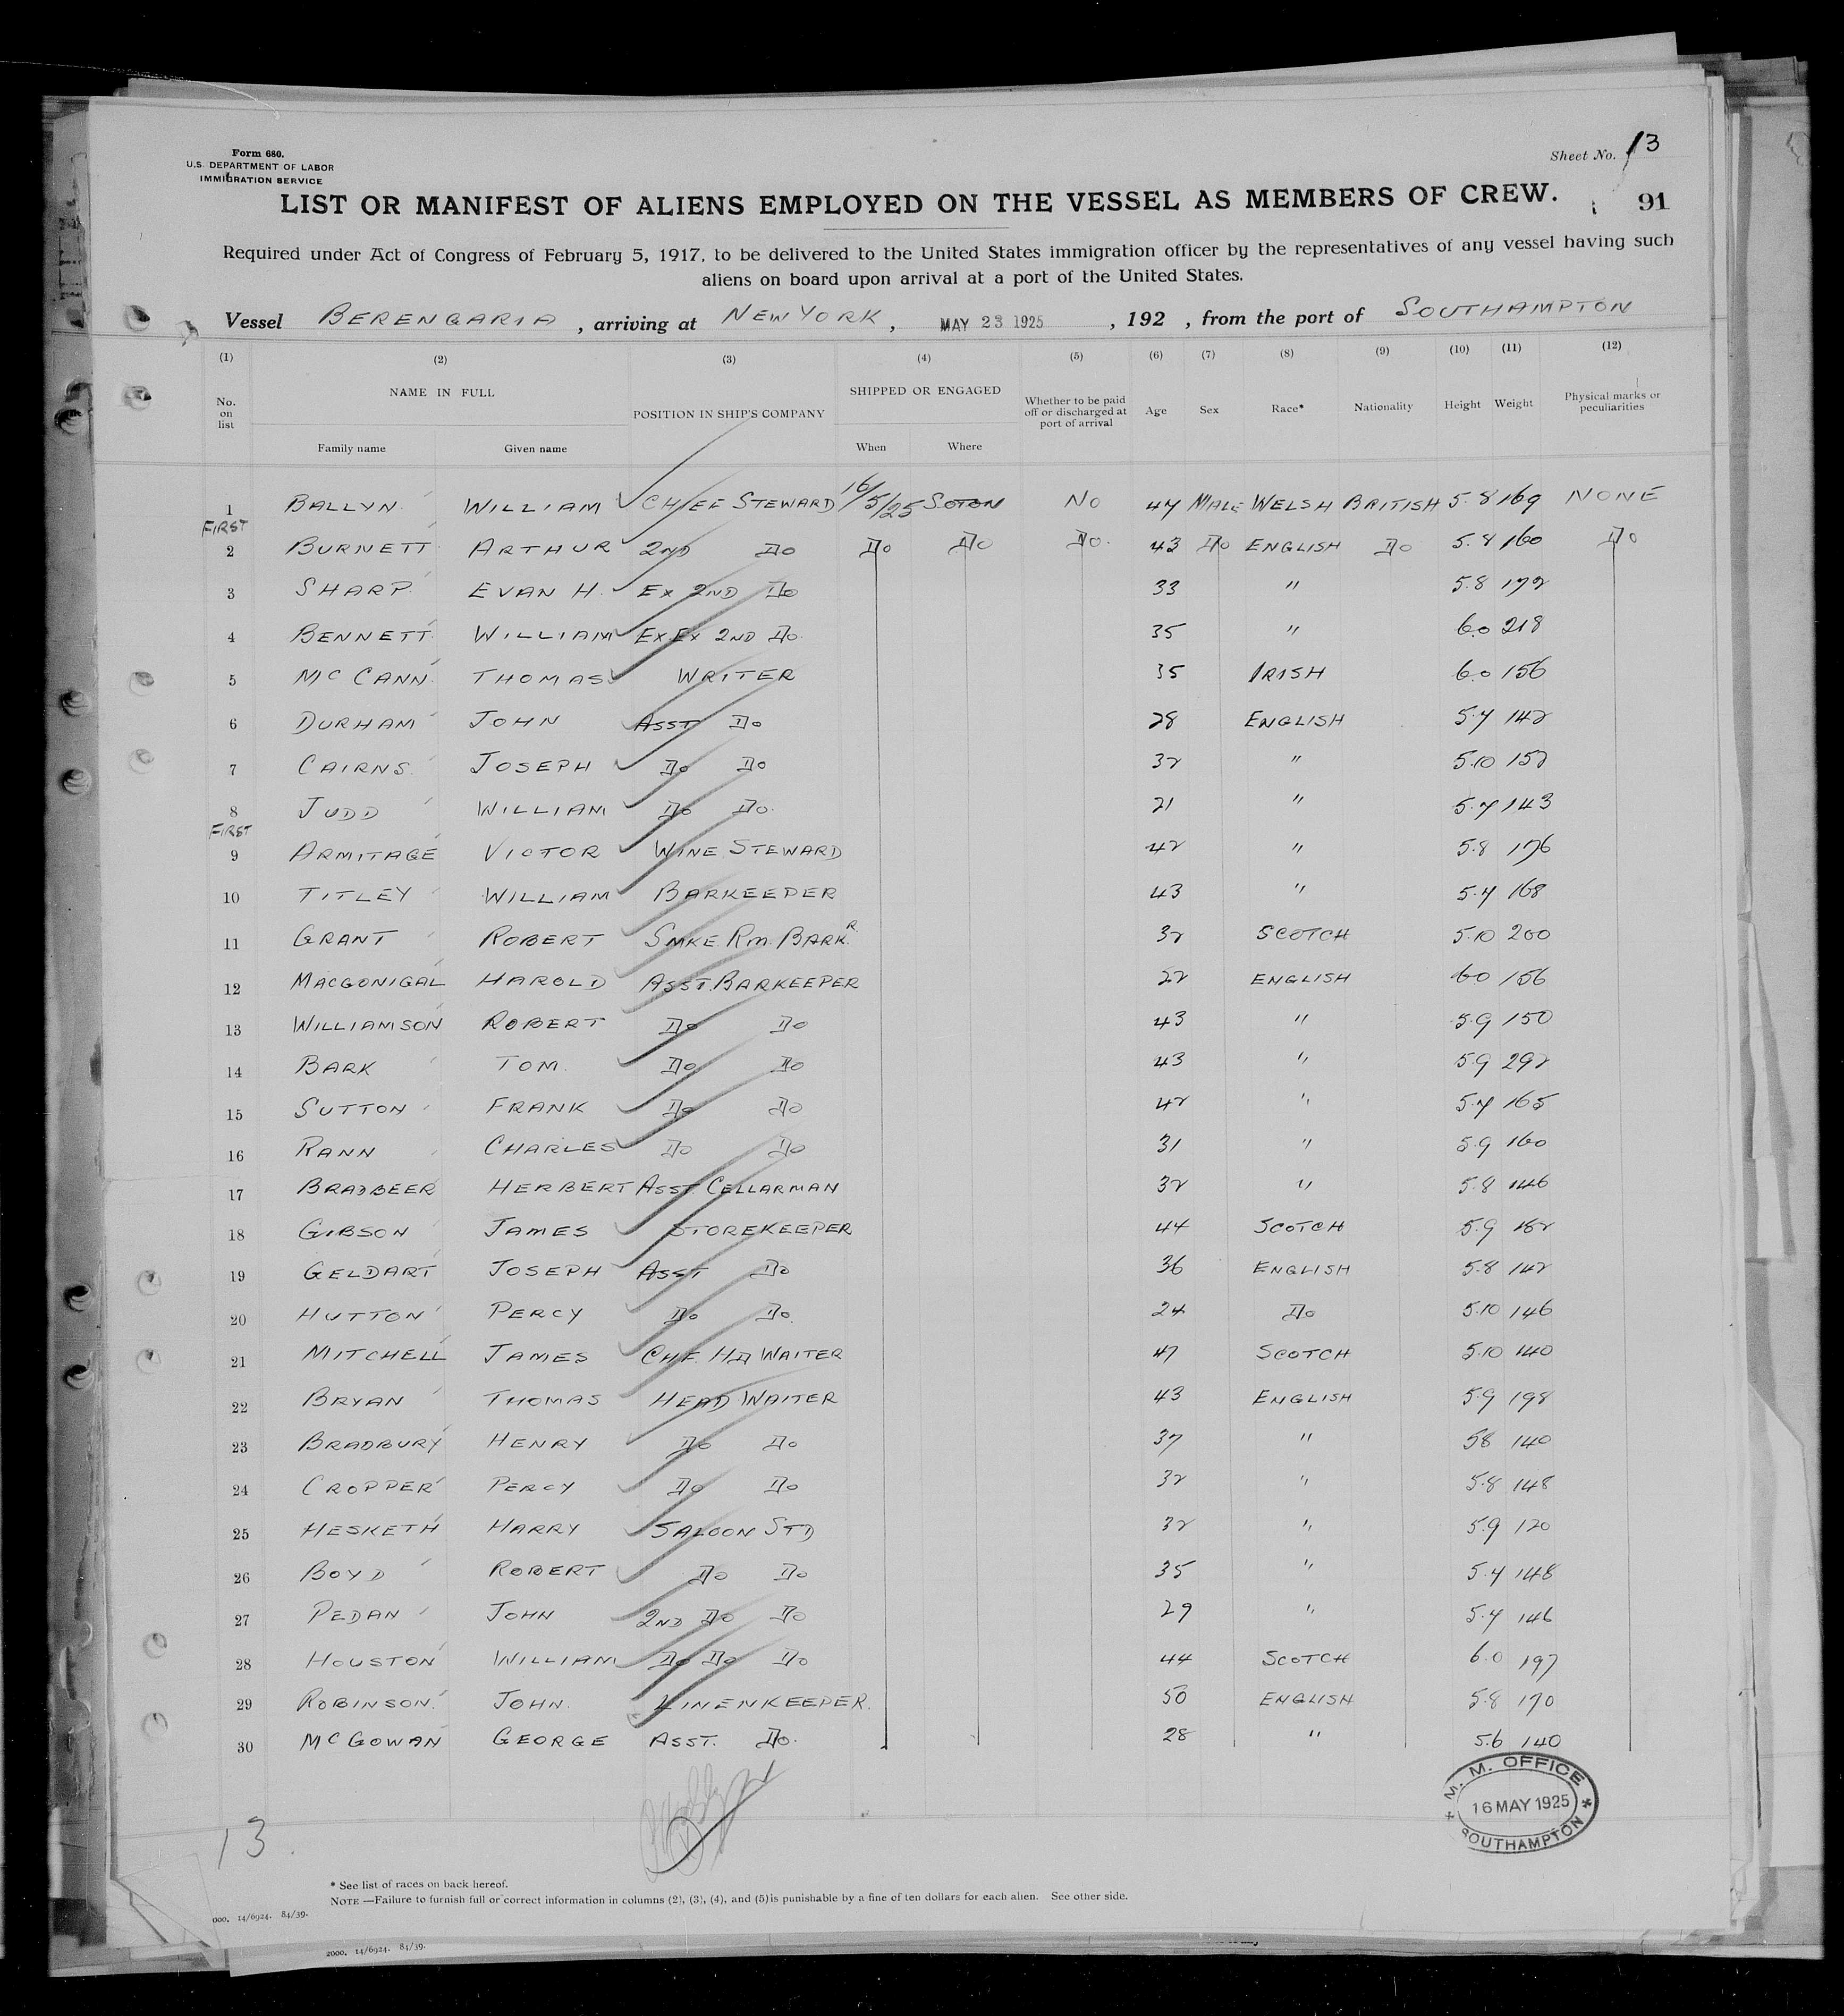 Form 680.
U.S. DEPARTMENT OF LABOR
IMMIGRATION SERVICE
Sheet No. 13
LIST OR MANIFEST OF ALIENS EMPLOYED ON THE VESSEL AS MEMBERS OF CREW.
91
Required under Act of Congress of February 5, 1917, to be delivered to the United States immigration officer by the representatives of any vessel having such
aliens on board upon arrival at a port of the United States.
Vessel BERENGARIA, arriving at NEW YORK, MAY 23 1925, 192 , from the port of SOUTHAMPTON
(1) (2) (3) (4) (5) (6) (7) (8) (9) (10) (11) (12)
No. on list NAME IN FULL POSITION IN SHIP'S COMPANY SHIPPED OR ENGAGED Whether to be paid off or discharged at port of arrival Age Sex Race* Nationality Height Weight Physical marks or peculiarities
Family name Given name When Where
1 BALLYN WILLIAM CHIEF STEWARD 16/5/25 SOTON NO 47 MALE WELSH BRITISH 5.8 169 NONE
FIRST
2 BURNETT ARTHUR 2ND DO DO DO DO. 43 DO ENGLISH DO 5.8 160 DO
3 SHARP EVAN H. EX 2ND DO 33 " 5.8 172
4 BENNETT WILLIAM EX.EX 2ND DO. 35 " 6.0 218
5 MCCANN THOMAS WRITER 35 IRISH 6.0 156
6 DURHAM JOHN ASST DO 28 ENGLISH 5.7 142
7 CAIRNS JOSEPH DO DO 32 " 5.10 152
8 JUDD WILLIAM DO DO. 21 " 5.7 143
FIRST
9 ARMITAGE VICTOR WINE STEWARD 42 " 5.8 176
10 TITLEY WILLIAM BARKEEPER 43 " 5.7 168
11 GRANT ROBERT SMKE. RM. BARKR. 32 SCOTCH 5.10 200
12 MACGONIGAL HAROLD ASST. BARKEEPER 22 ENGLISH 6.0 156
13 WILLIAMSON ROBERT DO DO 43 " 5.9 150
14 BARK TOM. DO DO 43 " 5.9 292
15 SUTTON FRANK DO DO 42 " 5.7 165
16 RANN CHARLES DO DO 31 " 5.9 160
17 BRADBEER HERBERT ASST CELLARMAN 32 " 5.8 146
18 GIBSON JAMES STOREKEEPER 44 SCOTCH 5.9
19 GELDART JOSEPH ASST DO 36 ENGLISH 5.8 142
20 HUTTON PERCY DO DO. 24 DO 5.10 146
21 MITCHELL JAMES CHF. HD WAITER 47 SCOTCH 5.10 140
22 BRYAN THOMAS HEAD WAITER 43 ENGLISH 5.9 198
23 BRADBURY HENRY DO DO 37 " 5.8 140
24 CROPPER PERCY DO DO 32 " 5.8 148
25 HESKETH HARRY SALOON STD 32 " 5.9 120
26 BOYD ROBERT DO DO 35 " 5.7 148
27 PEDAN JOHN 2ND DO DO 29 " 5.7 146
28 HOUSTON WILLIAM DO DO DO 44 SCOTCH 6.0 197
29 ROBINSON. JOHN. LINENKEEPER. 50 ENGLISH 5.8 170
30 MCGOWAN GEORGE ASST. DO. 28 " 5.6 140
M. M. OFFICE
16 MAY 1925
SOUTHAMPTON
13.
* See list of races on back hereof.
NOTE.—Failure to furnish full or correct information in columns (2), (3), (4), and (5) is punishable by a fine of ten dollars for each alien. See other side.
000. 14/6924. 84/39.
2000. 14/6924. 84/39.